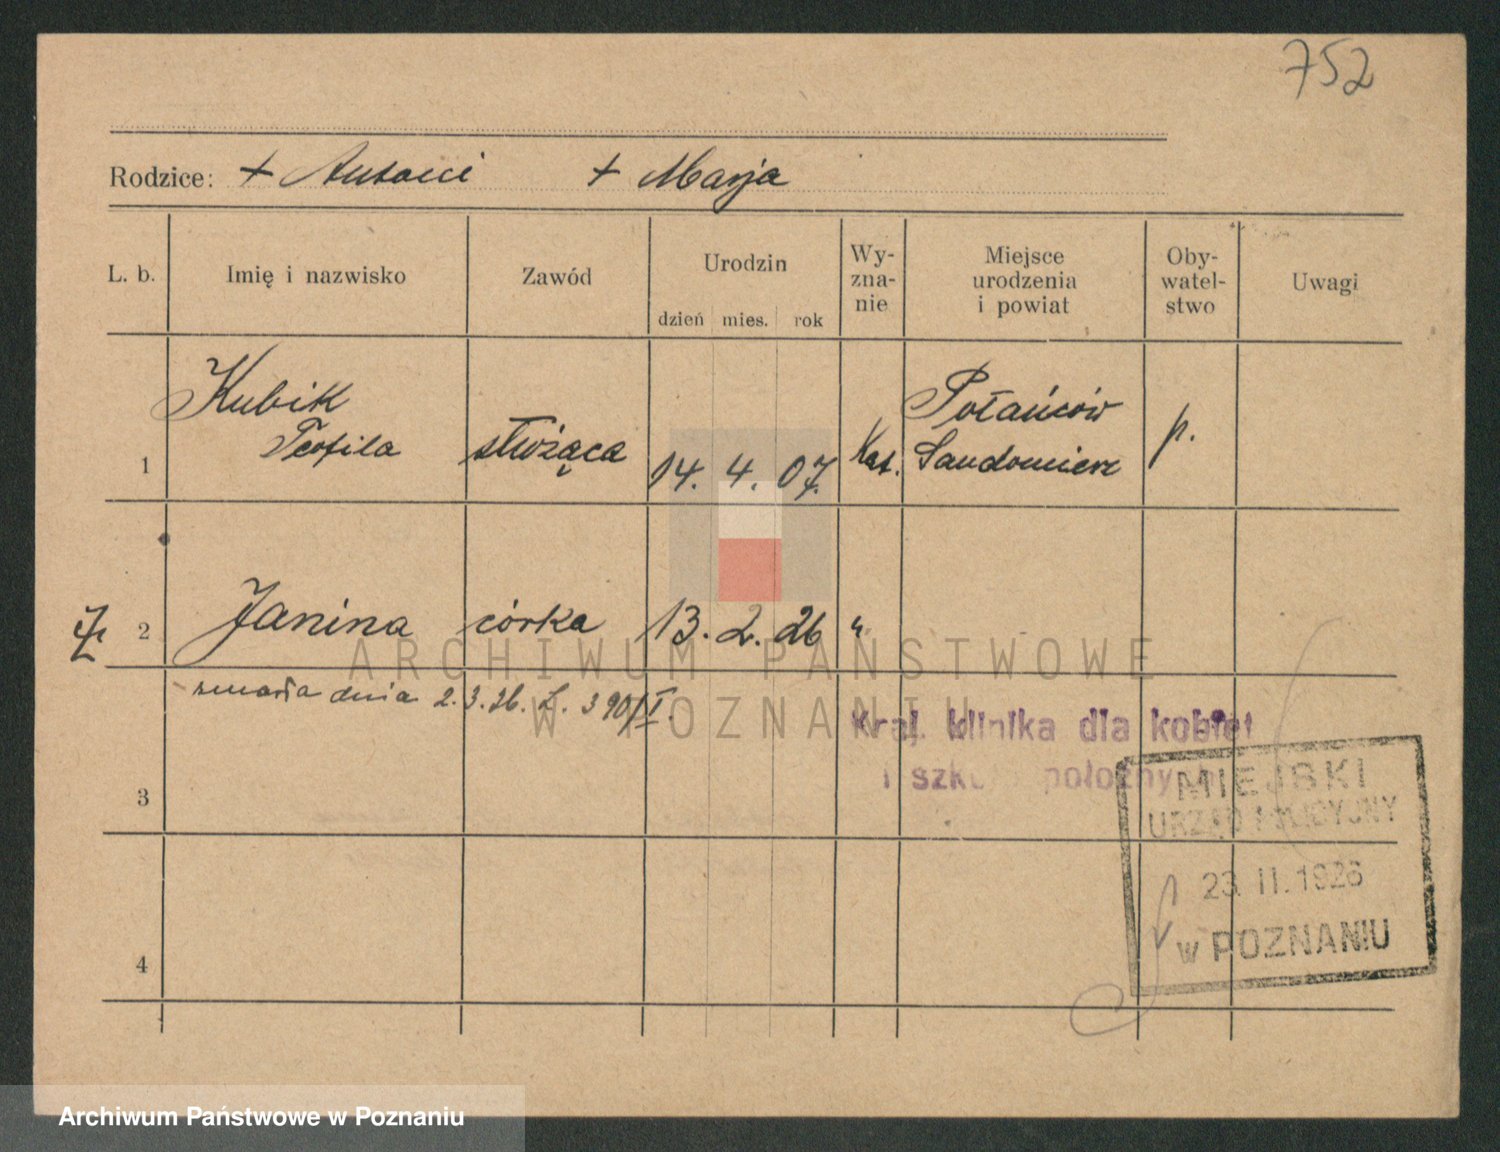 752
Rodzice: + Antoni + Marja
L. b. Imię i nazwisko Zawód Urodzin Wy-zna-nie Miejsce urodzenia i powiat Oby-watel-stwo Uwagi
dzień mies. rok
Kubik Połańców
1 Teofila służąca 14. 4. 07. Kat. Sandomierz p.
2 Janina córka 13. 2. 26 "
zmarła dnia 2.3.26. L. 390/I.
Kraj. klinika dla kobiet
i szkoła położnych
3
MIEJSKI
URZĄD POLICYJNY
23. II. 1926
w POZNANIU
4
ARCHIWUM PAŃSTWOWE
W POZNANIU
Archiwum Państwowe w Poznaniu